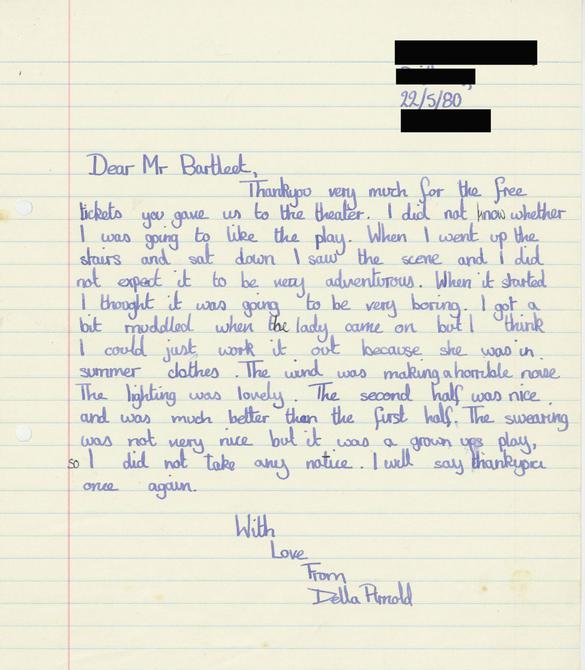 22/5/80
Dear Mr Bartleet,
Thankyou very much for the free
tickets you gave us to the theater. I did not know whether
I was going to like the play. When I went up the
stairs and sat down I saw the scene and I did
not expect it to be very adventurous. When it started
I thought it was going to be very boring. I got a
bit muddled when the lady came on but I think
I could just work it out because she was in
summer clothes. The wind was making a horrible noise
The lighting was lovely. The second half was nice
and was much better than the first half. The swearing
was not very nice but it was a grown ups play,
so I did not take any notice. I will say thankyou
once again.
With
Love
From
Della Arnold